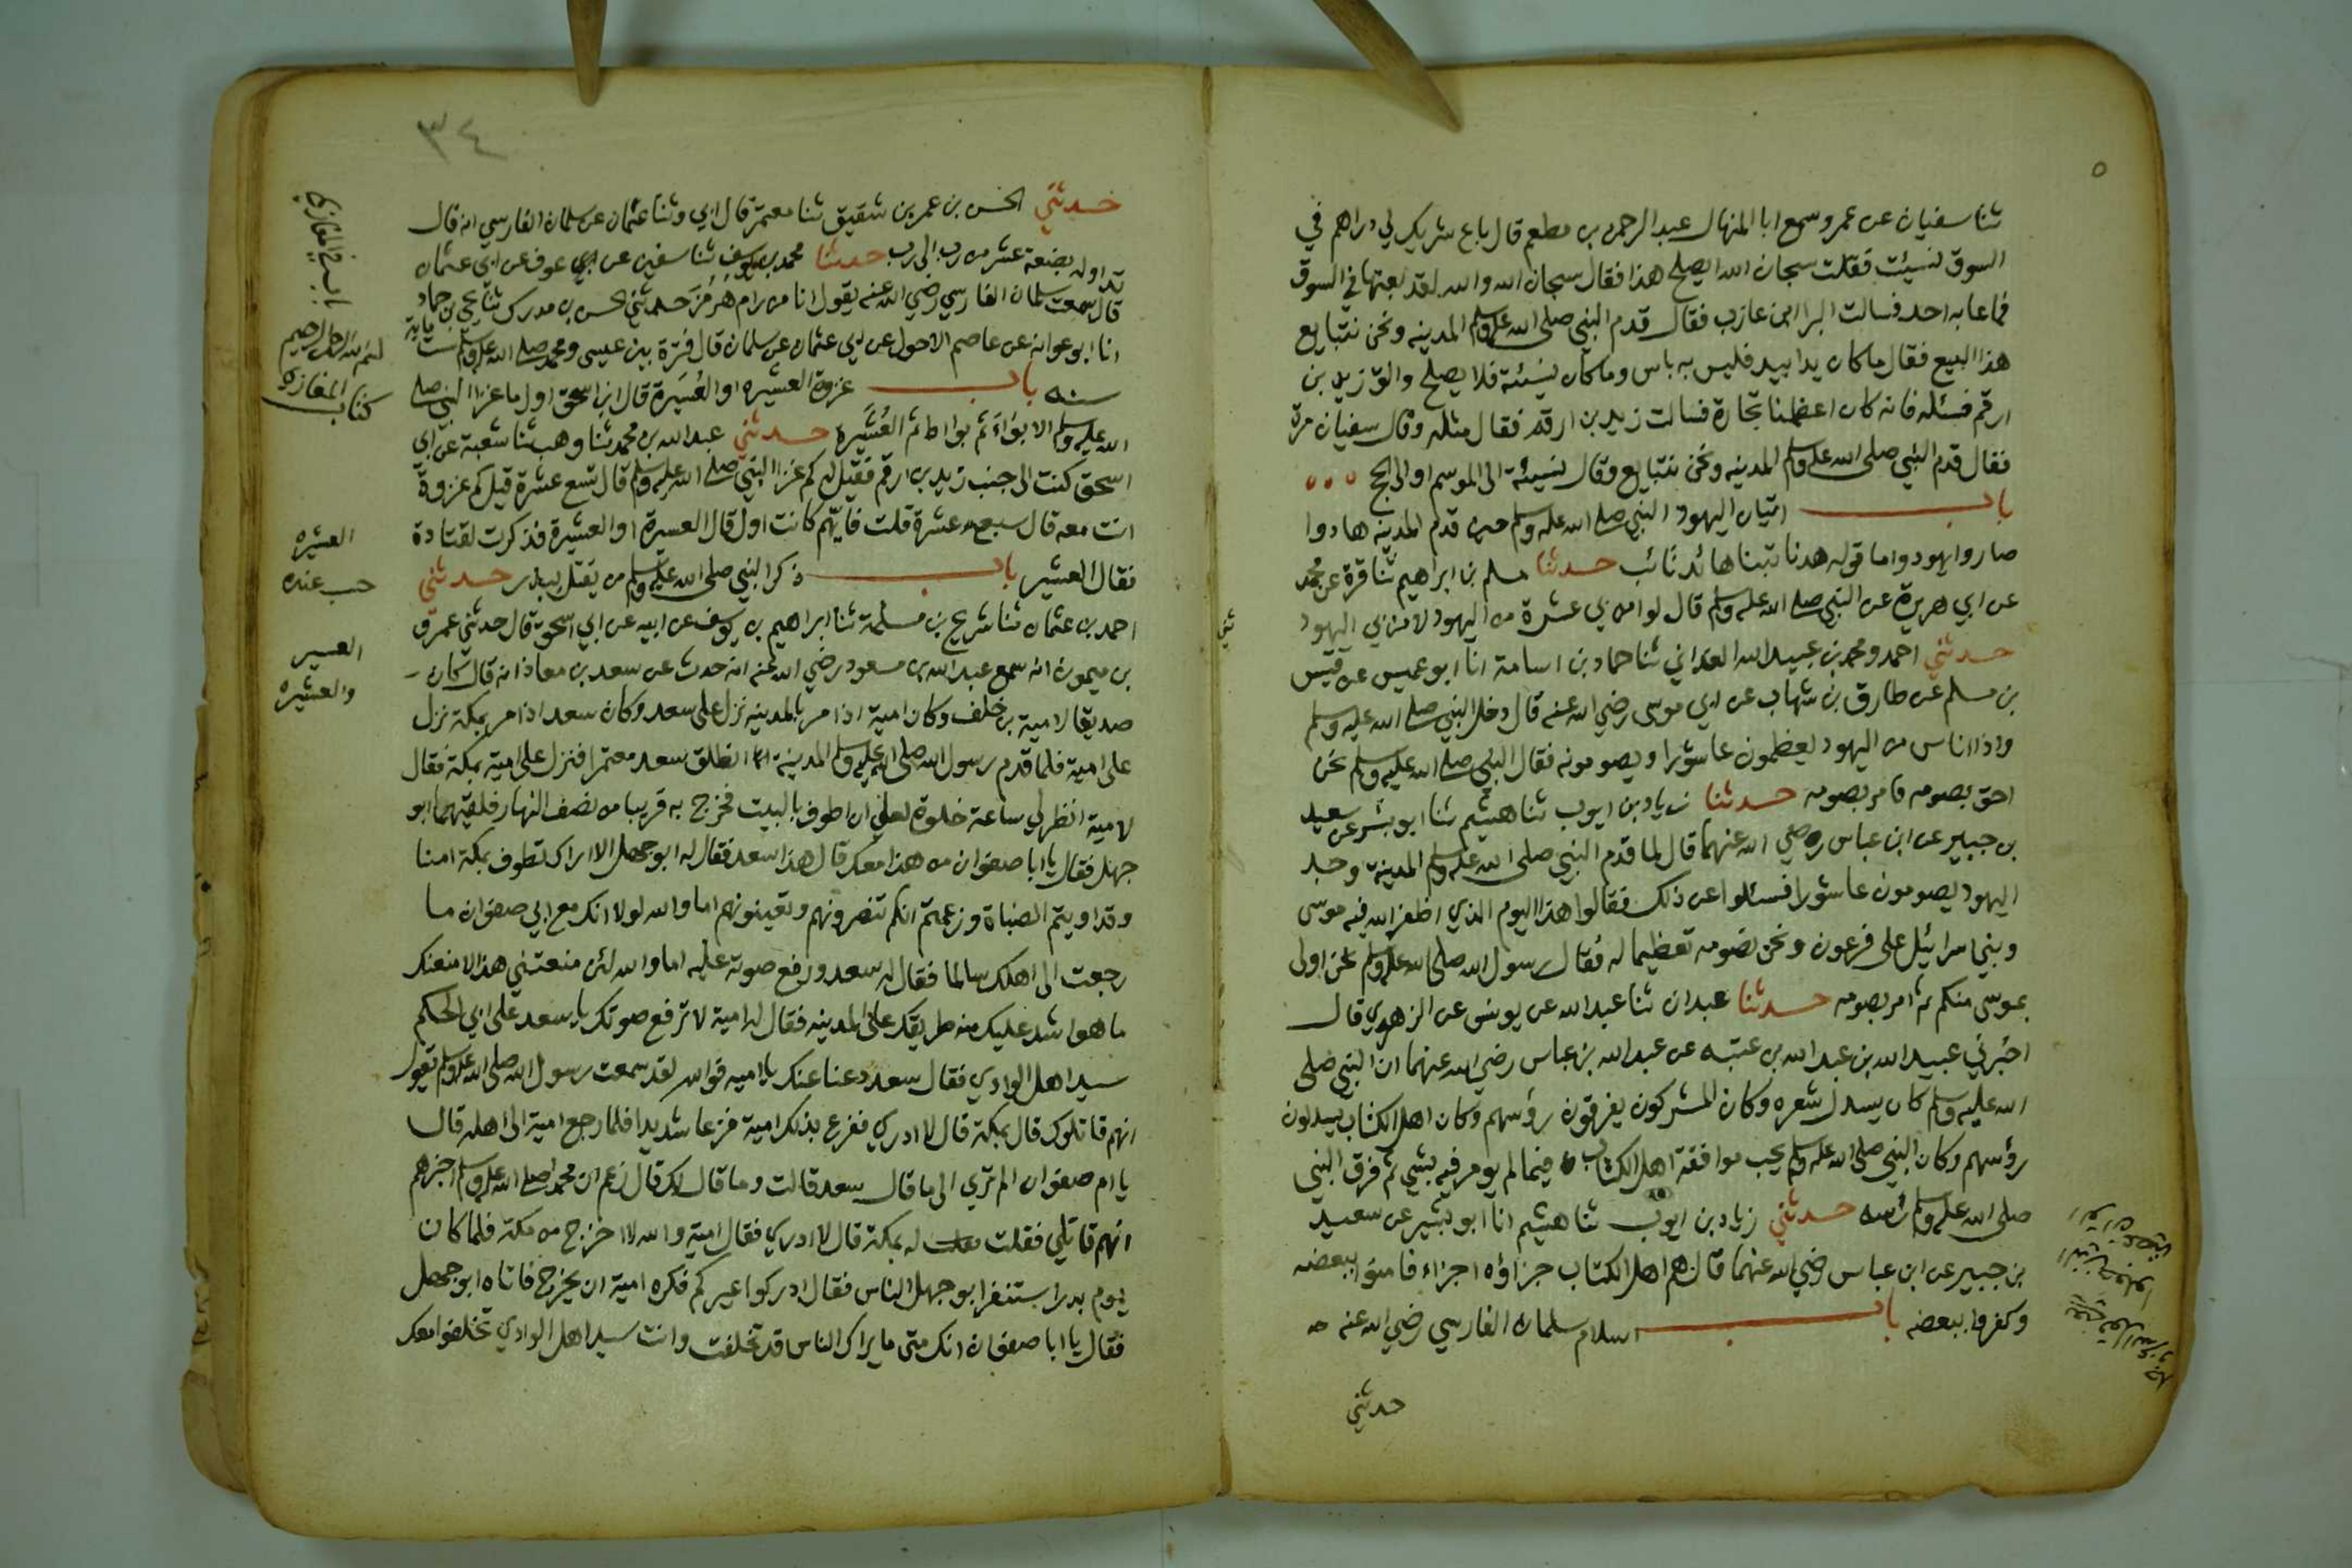 ثنا سفيان عن عمرو سمع ابا المنهال عبد الرحمن بن مطعم قال باع شريك لي دراهم في
السوق لنسيئت فقلت سبحان الله ايصلح هذا فقال سبحان الله والله لقد بعتها في السوق
فما عابه احد فسالت البرا ابن عازب فقال قدم النبي صلى الله عليه وسلم المدينه ونحن نتبايع
هذا البيع فقال ما كان يدا بيد فليس به باس وما كان نسيئة فلا يصلح والق زيد بن
ارقم فسئله فانه كان اعظمنا تجارة فسالت زيد بن ارقم فقال مثله وقال سفيان مرة
فقال قدم النبي صلى الله عليه وسلم المدينه ونحن نتبايع وقال نسيئة الى الموسم او الحج
باب اتيان اليهود النبي صلى الله عليه وسلم حين قدم المدينه هادوا
صاروا يهود واما قوله هدنا تبنا هائد تائب حدثنا مسلم بن ابراهيم ثنا قرة عن محمد
عن ابي هريرة عن النبي صلى الله عليه وسلم قال لو امن بي عشرة من اليهود لامن بي اليهود
حدثني احمد ومحمد بن عبيد الله الغداني ثنا حماد بن اسامة انا ابو عميس عن قيس
بن مسلم عن طارق بن شهاب عن ابي موسى رضي الله عنه قال دخل النبي صلى الله عليه وسلم
واذا اناس من اليهود يعظمون عاشورا ويصومونه فقال النبي صلى الله عليه وسلم نحن
احق بصومه فامر بصومه حدثنا زياد بن ايوب ثنا هشيم ثنا ابو بشر عن سعيد
بن جبير عن ابن عباس رضي الله عنهما قال لما قدم النبي صلى الله عليه وسلم المدينة وجد
اليهود يصومون عاشورا فسئلوا عن ذلك فقالوا هذا اليوم الذي اظفر الله فيه موسى
وبني اسرائيل على فرعون ونحن نصومه تعظيما له فقال رسول الله صلى الله عليه وسلم نحن اولى
بموسى منكم ثم امر بصومه حدثنا عبدان ثنا عبد الله عن يونس عن الزهري قال
اخبرني عبيد الله بن عبد الله بن عتبه عن عبد الله بن عباس رضي الله عنهما ان النبي صلى
الله عليه وسلم كان يسدل شعره وكان المشركون يفرقون رؤسهم وكان اهل الكتاب يسدلون
رؤسهم وكان النبي صلى الله عليه وسلم يحب موافقة اهل الكتاب فيما لم يومر فيه بشيي ثم فرق النبي
صلى الله عليه وسلم راسه حدثني زياد بن ايوب ثنا هشيم انا ابو بشير عن سعيد
بن جبير عن ابن عباس رضي الله عنهما قال هم اهل الكتاب جزاؤه اجزاء فامنوا ببعضه
وكفروا ببعضه باب اسلام سلمان الفارسي رضي الله عنه
حدثني
٣٤
حدثني الحسن بن عمر بن شقيق ثنا معتمر قال ابي وثنا عثمان عن سلمان الفارسي انه قال
تداوله بضعة عشر من رب الى رب حدثنا محمد بن يوسف ثنا سفين عن عوف عن ابي عثمان
قال سمعت سلمان الفارسي رضي الله عنه يقول انا من رام هرمز حدثني الحسن بن مدرك ثنا يحيى بن حماد
انا ابو عوانه عن عاصم الاحول عن ابي عثمان عن سلمان قال فترة بين عيسى ومحمد صلى الله عليه وسلم ست ماية
سنه باب غزوة العشيره او العسيرة قال ابن اسحق اول ما غزا النبي صلى
الله عليه وسلم الابواء ثم بواط ثم العشيرة حدثني عبد الله بن محمد ثنا وهب ثنا شعبة عن ابي
اسحق كنت الى جنب زيد بن ارقم فقيل له كم غزا النبي صلى الله عليه وسلم قال تسع عشرة قيل كم غزوة
انت معه قال سبع عشرة قلت فايهم كانت اول قال العسيرة او العشيرة فذكرت لقتادة
فقال العشير باب ذكر النبي صلى الله عليه وسلم من يقتل ببدر حدثني
احمد بن عثمان ثنا شريح بن مسلمة ثنا ابراهيم بن يوسف عن ابيه عن ابي اسحق قال حدثني عمرو
بن ميمون انه سمع عبد الله بن مسعود رضي الله عنه انه حدث عن سعد بن معاذ انه قال كان
صديقا لامية بن خلف وكان امية اذا مر بالمدينه نزل على سعد وكان سعد اذا مر بمكة نزل
على امية فلما قدم رسول الله صلى الله عليه وسلم المدينة انطلق سعد معتمرا فنزل على امية بمكة فقال
لامية انظر لي ساعة خلوة لعلي ان اطوف بالبيت فخرج به قريبا من نصف النهار فلقيهما ابو
جهل فقال يا ابا صفوان من هذا معك قال هذا سعد فقال له ابو جهل الا اراك تطوف بمكة امنا
وقد اويتم الصباة وزعمتم انكم تنصرونهم وتعينونهم اما والله لولا انك مع ابي صفوان ما
رجعت الى اهلك سالما فقال له سعد ورفع صوته عليه اما والله لئن منعتني هذا لامنعنك
ما هو اشد عليك منه طريقك على المدينه فقال له امية لا ترفع صوتك يا سعد على ابي الحكم
سيد اهل الوادي فقال سعد دعنا عنك يا اميه فوالله لقد سمعت رسول الله صلى الله عليه وسلم يقول
انهم قاتلوك قال بمكة قال لا ادري ففزع بذلك امية فزعا شديدا فلما رجع امية الى اهله قال
يا ام صفوان الم تري الى ما قال سعد قالت وما قال لك قال زعم ان محمدا صلى الله عليه وسلم اخبرهم
انهم قاتلي فقلت له بمكة قال لا ادري فقال امية والله لا اخرج من مكة فلما كان
يوم بدر استنفر ابو جهل الناس فقال ادركوا عيركم فكره امية ان يخرج فاتاه ابو جهل
فقال يا ابا صفوان انك متى ما يراك الناس قد تخلفت وانت سيد اهل الوادي تخلفوا معك
باب في المغازي
بسم الله الرحمن الرحيم
كتاب المغازي
العشيره
عنده
العسير
والعشيره